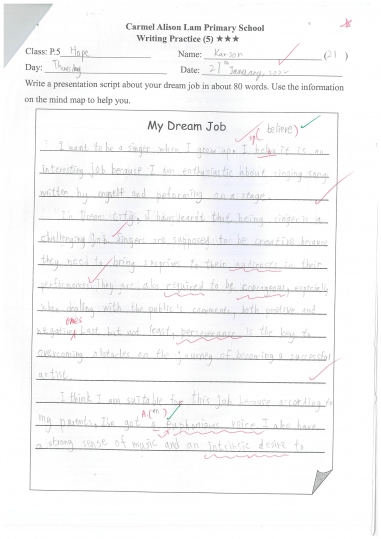 Carmel Alison Lam Primary School
Writing Practice (5) ★★★
Class: P.5 Hope Name: Karson (21)
Day: Thursday Date: 27th January,
Write a presentation script about your dream job in about 80 words. Use the information
on the mind map to help you.
My Dream Job
sp( believe)
I want to be a singer when I grow up. I it is an
interesting job because I am enthusiastic about singing song
written by myself and peforming on a stage.
In Dream City, I have learnt that being singer is a
challenging job. Singers are supposed to be creative because
they need to bring surprises to their audiences in their
performances. They are also required to be especially
when dealing with the public's comments, both positive and
ones
negative. Last, but not least, perseverance is the key to
overcoming obstacles on the journey of becoming a successful
artist.
I think I am suitable for this job because according to
A.(an )
my parents, I've got a Euphonious voice. I also have
a strong sense of music and an intrinsic desire to